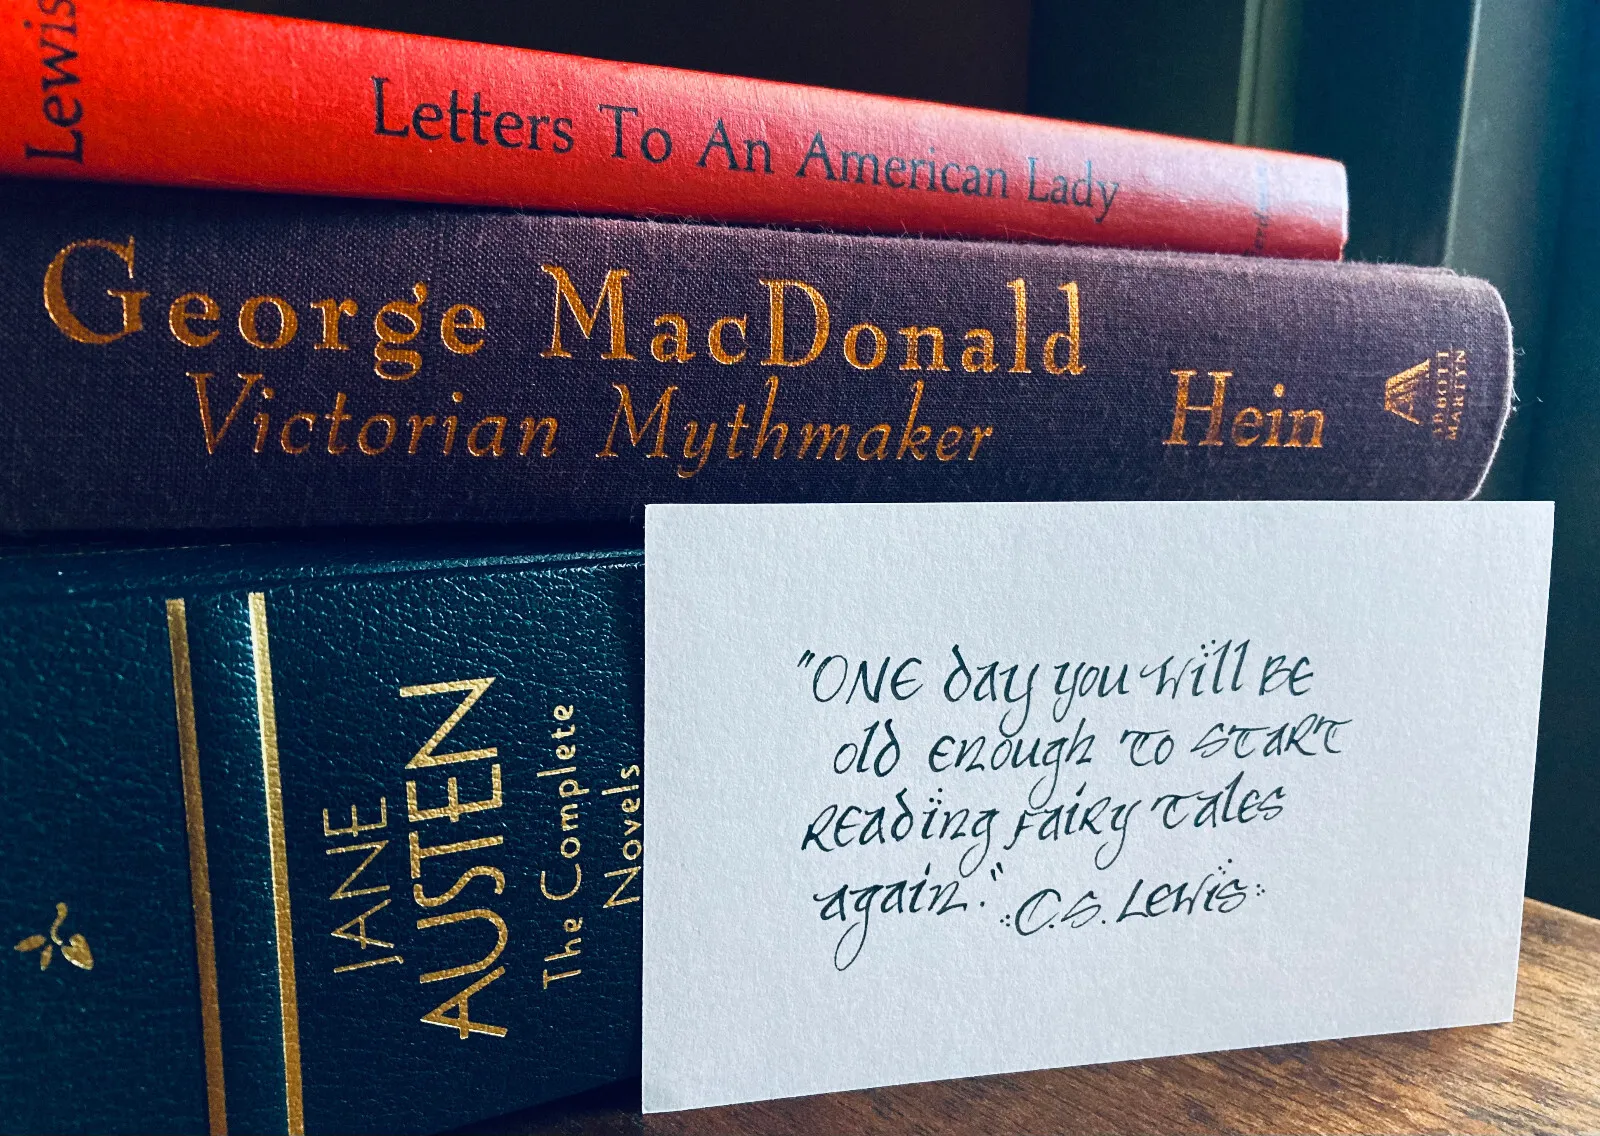 Lewis
Letters To An American Lady
George MacDonald
Victorian Mythmaker
Hein
ABBOTT
MARTYN
JANE
AUSTEN
The Complete
Novels
"ONE day you will BE
old ENough TO START
READiNg FAiRy TAlES
agaiN." C.S. LEWiS